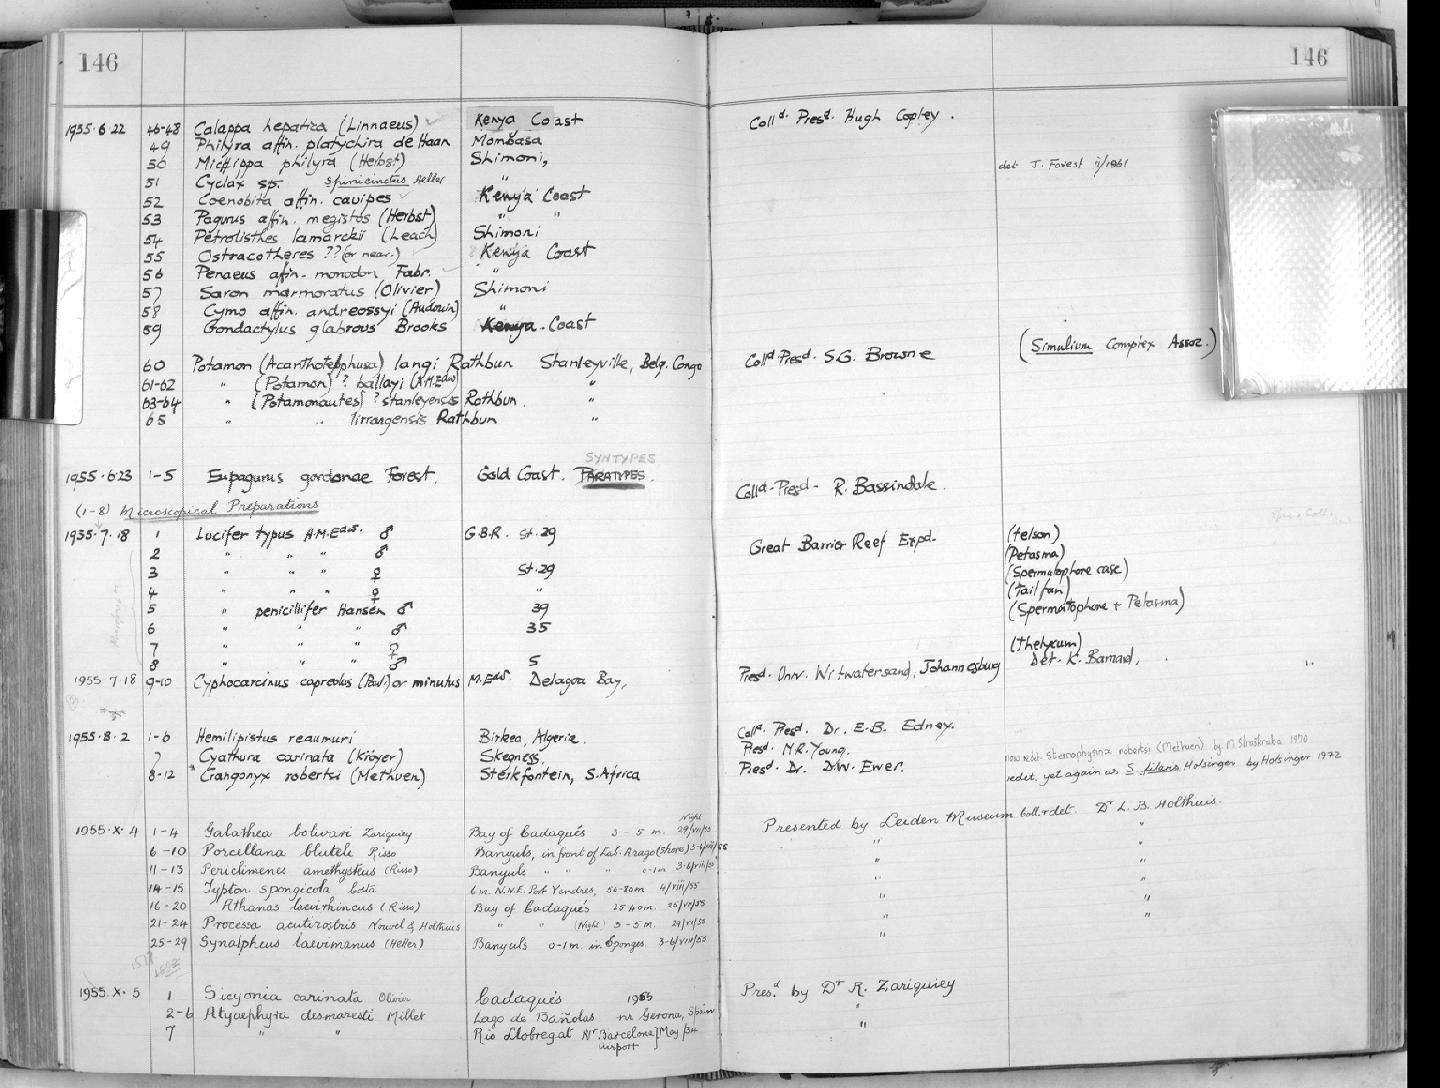 146
146
1955.6.22 46-48 Calappa hepatica (Linnaeus) Kenya Coast Colld. Presd. Hugh Copley.
49 Philyra affin. platychira de Haan Mombasa
50 Micippa philyra (Herbst) Shimoni, det J. Forest 1961
51 Cyclax sp. spinicinctus Heller "
52 Coenobita affin. cavipes Kenya Coast
53 Pagurus affin. megistos (Herbst) " "
54 Petrolisthes lamarckii (Leach) Shimoni
55 Ostracotheres ?? (or near.) Kenya Coast
56 Penaeus affin. monodon Fabr. "
57 Saron marmoratus (Olivier) Shimoni
58 Cymo affin. andreossyi (Audouin) "
59 Gondactylus glabrous Brooks Kenya Coast
60 Potamon (Acanthotelphusa) langi Rathbun Stanleyville, Belg. Congo Colld. Presd. S.G. Browne (Simulium Complex Assoc.)
61-62 " (Potamon) ? ballayi (A.M.Edw) "
63-64 " (Potamonautes) ? stanleyensis Rathbun "
65 " " lirrangensis Rathbun "
SYNTYPES
1955.6.23 1-5 Eupagurus gordonae Forest. Gold Coast. PARATYPES. Colld. Presd. R. Bassindale.
(1-8) Microscopical Preparations
1955.7.18 1 Lucifer typus A.M.Edws. ♂ G.B.R. St.29 Great Barrier Reef Expd. (telson)
2 " " " ♂ (Petasma)
3 " " " ♀ St.29 (Spermatophore case)
4 " " " ♀ " (Tail fan)
5 " penicillifer Hansen ♂ 39 (Spermatophore + Petasma)
6 " " " ♂ 35
7 " " " ♀ (thelycum)
8 " " " ♂ 5 Det. K. Barnard,
1955 7.18 9-10 Cyphocarcinus capreolus (Paul.) or minutus M.Edw. Delagoa Bay, Presd. Univ. Witwatersand, Johannesburg
1955.8.2 1-6 Hemilipistus reaumuri Birkea, Algeria. Colld. Presd. Dr. E.B. Edney.
7 Cyathura carinata (Kröyer) Skegness, Presd. M.R. Young.
8-12 * Crangonyx robertsi (Methuen) Sterkfontein, S. Africa Presd. Dr. D.W. Ewer. now redet. Sternophysinx robertsi (Methuen) by M. Straškraba 1970
redet. yet again as S. filaris Holsinger by Holsinger 1972
1955.X.4 1-4 Galathea bolivari Zariquiey Bay of Cadaqués 3-5 m. Night 29/vii/55 Presented by Leiden Museum Coll. + det. Dr L. B. Holthuis.
6-10 Porcellana bluteli Risso Banyuls, in front of Lab. Arago (shore) 3-6/viii/55 " "
11-13 Periclimenes amethysteus (Risso) Banyuls " " " 0-1m 3-6/viii/55 " "
14-15 Typton spongicola Costa 6 m. N.N.E. Port Vendres, 50-80m 4/viii/55 " "
16-20 Athanas laevirhincus (Risso) Bay of Cadaqués 25-40m. 25/vii/55 " "
21-24 Processa acutirostris Nouvel & Holthuis " " (Night) 3-5m. 29/vii/55 " "
25-29 Synalpheus laevimanus (Heller) Banyuls 0-1m. in Sponges 3-6/viii/55 "
1955.X.5 1 Sicyonia carinata Olivier Cadaqués 1955 Presd by Dr R. Zariquiey
2-6 Atyaephyra desmaresti Millet Lago de Bañolas nr Gerona, Spain "
7 " " Rio Llobregat Nr. Barcelona airport May/54 "